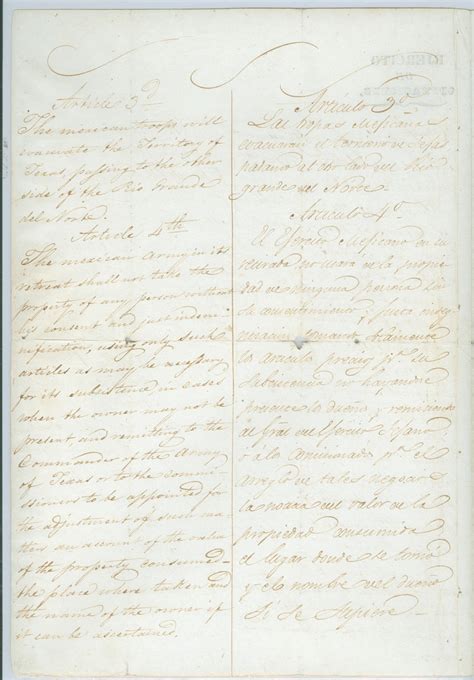 Article 3d
The mexican troops will
evacuate the Territory of
Texas, passing to the other
side of the Rio Grande
del Norte.
Article 4th
The mexican Army in its
retreat shall not take the
property of any person without
his consent and just indem-
nification, using only such
articles as may be necessary
for its subsistence in cases
when the owner may not be
present and remitting to the
Commander of the Army
of Texas or to the commis-
sioners to be appointed for
the adjustment of such mat-
ters an account of the value
of the property consumed
the place where taken and
the name of the owner if
it can be ascertained.
EJERCITO
Articulo 3o
Las tropas Mejicanas
evacuaran el territorio de Tejas
pasando al otro lado del Rio
grande del Norte
Articulo 4o
El Ejercito Mejicano en su
retirada no usará de la propie
dad de ninguna persona sin
su consentimiento, y justa
tomando solamente
los articulos precisos pa. su
subsistencia no hayandose
presente los dueños, y remitiendo
al Gral. del Ejercito Tejano
o a los comicionados pa. el
arreglo de tales
la noticia del valor de la
propiedad consumida
el lugar donde se tomó
y el nombre del dueño
si se supiere